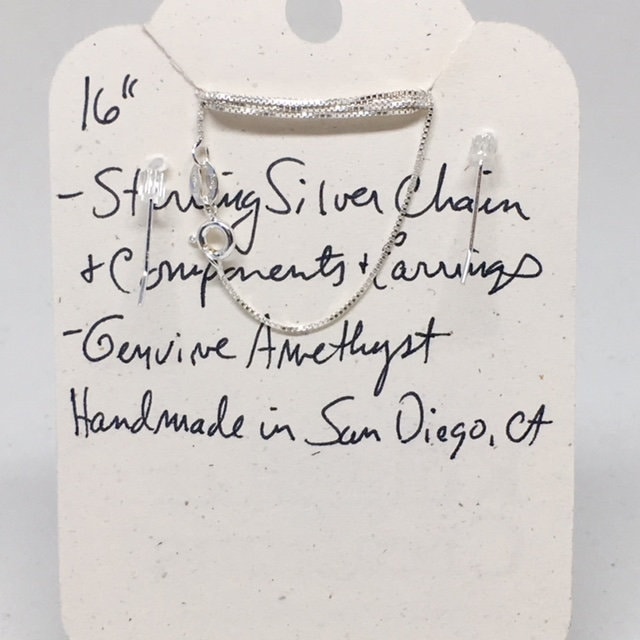 16"
- Sterling Silver Chain
+ Components + Earrings
- Genuine Amethyst
Handmade in San Diego, CA